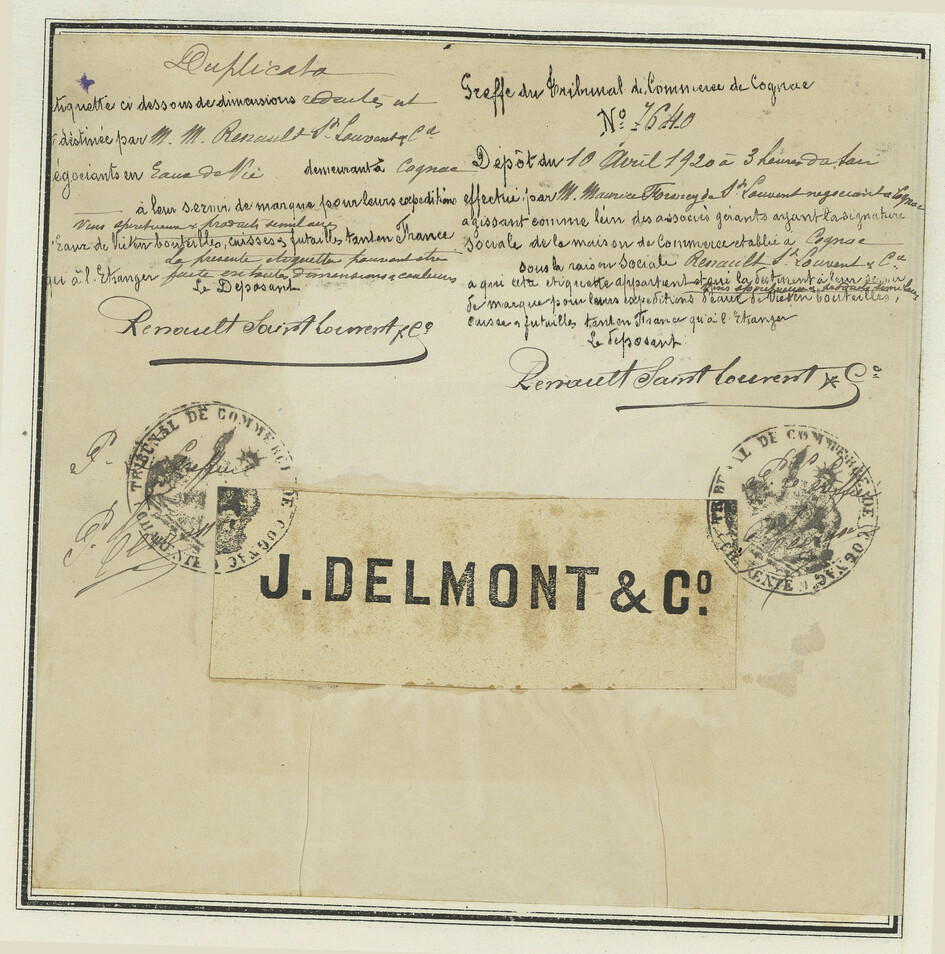 Duplicata
etiquette ci dessous de dimensions reduites est
destinée par M. M. Renault St Louvent & Cie
négociants en Eaux de Vie demeurant à Cognac
à leur servir de marque pour leurs expeditions
Vins spiritueux & produits similaires
Eaux de Vie en bouteilles, caisses & futailles tant en France
La presente etiquette pouvant etre
qui à l'Etranger faite en toutes dimensions & couleurs
Le Deposant
Renault Saint Louvent & Co
Greffe du Tribunal de Commerce de Cognac
No 7640
Dépôt du 10 Avril 1920 à 3 heures du soir
effectué par M. Maurice de St Louvent negociant à Cognac
agissant comme l'un des associés gérants ayant la signature
Sociale de la maison de Commerce etablie à Cognac
sous la raison Sociale Renault St Louvent & Cie
a qui cete etiquette appartient et qui la destinent à leur servir
Vins spiritueux & produits similaires
de marque pour leurs expeditions d'eaux de Vie en bouteilles,
caisse & futailles tant en France qu'à l'Etranger
Le deposant
Renault Saint Louvent & Co
TRIBUNAL DE COMMERCE DE COGNAC
TRIBUNAL DE COMMERCE DE COGNAC
J. DELMONT & Co.